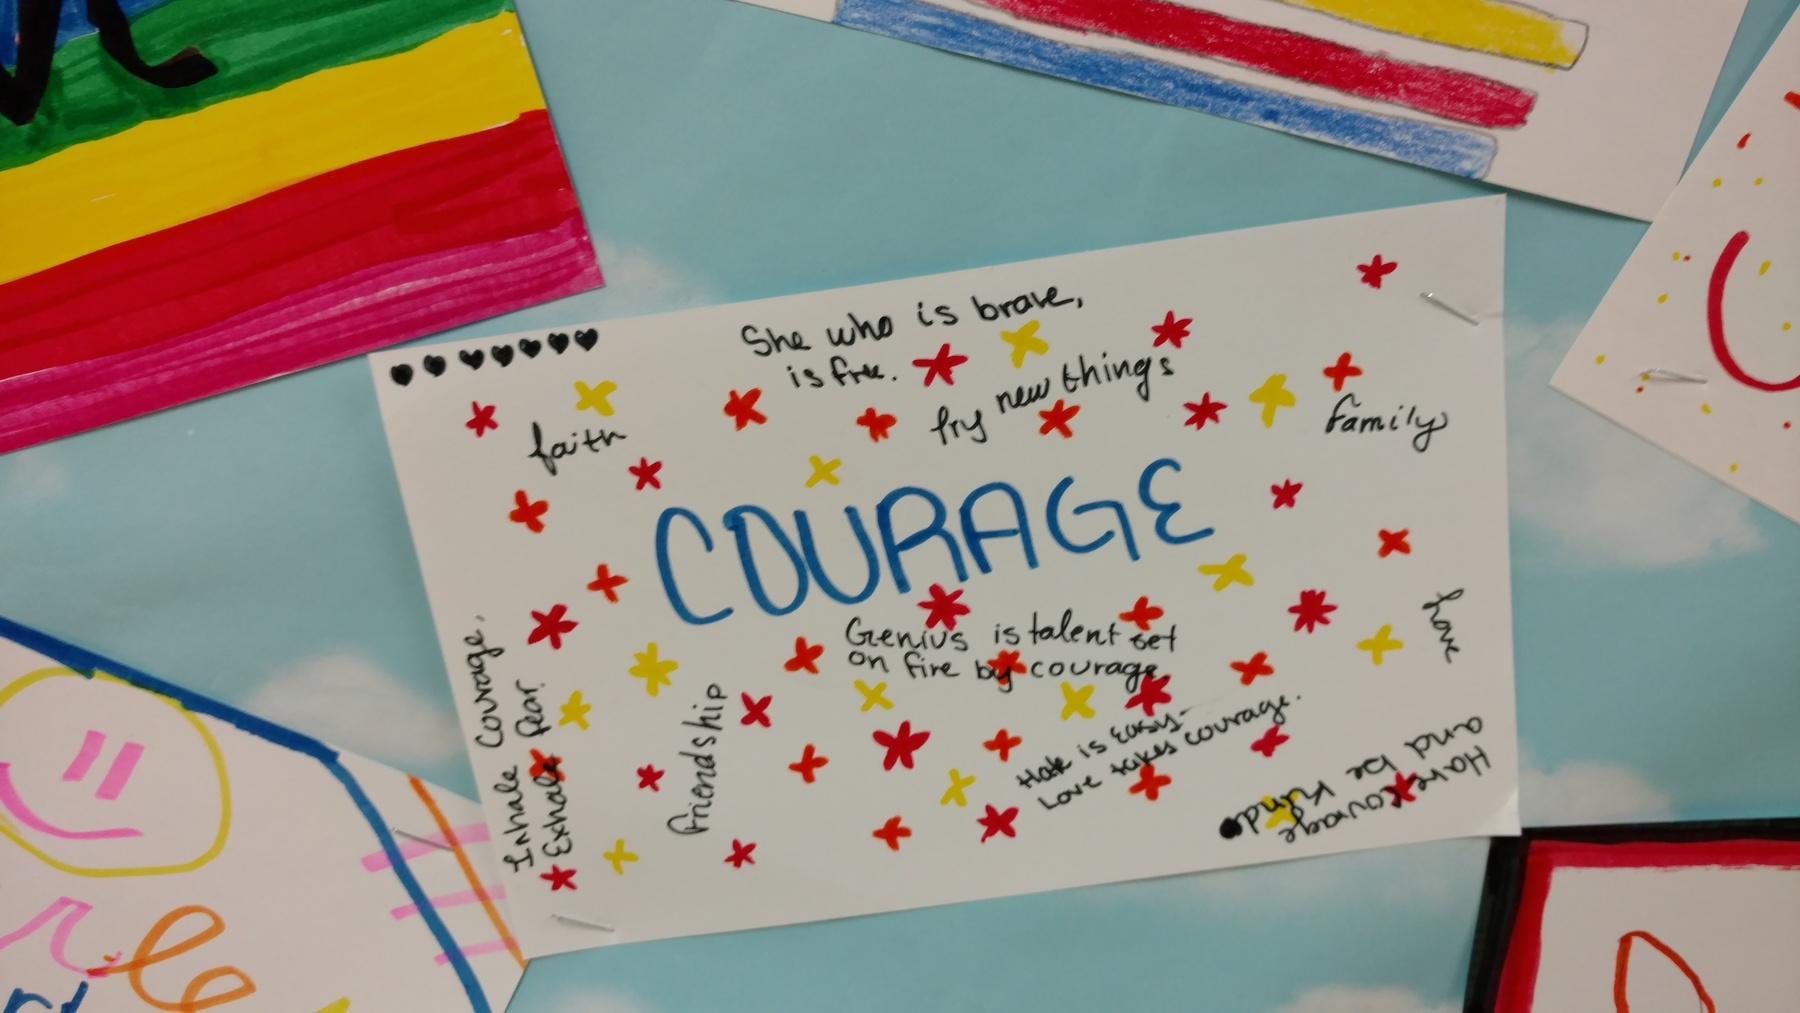 She who is brave,
is free.
try new things
faith
family
COURAGE
Genius is talent set
on fire by courage.
love
Hate is easy-
Love takes courage.
Have courage
and be kind
friendship
Inhale courage,
Exhale fear.